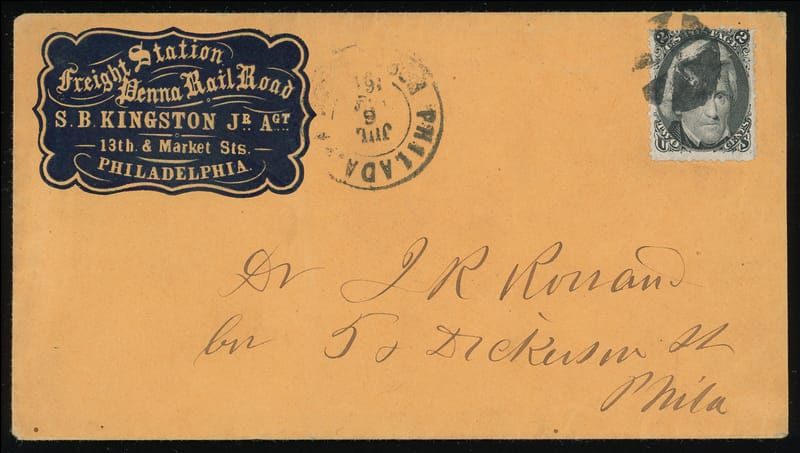 Freight Station
Penna Rail Road
S. B. KINGSTON JR. AGT.
13th. & Market Sts.
PHILADELPHIA.
PHILADA.
JUL
6
2
2
Dr J R
cor 5 & Dickerson St
Phila